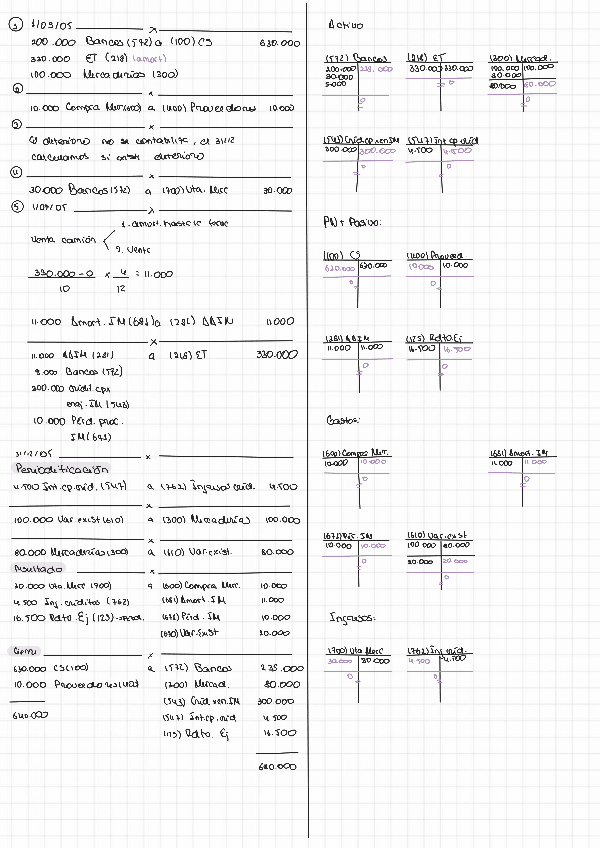 ① 1/09/05 x
200.000 Bancos (572) a (100) CS 630.000
330.000 ET (218) (amort)
100.000 Mercaderías (300)
② x
10.000 Compra Merc(600) a (400) Proveedores 10.000
③ x
El deterioro no se contabiliza, el 31/12
calculamos si existe deterioro
④ x
30.000 Bancos (572) a (700) Vta. Merc 30.000
⑤ x
1. amort. hasta la fecha
Venta camión
2. Venta
330.000 - 0 x 4 = 11.000
10 12
11.000 Amort. IM (681) a (281) AAIM 11.000
x
11.000 AAIM (281) a (218) ET 330.000
Bancos (572)
Crédit. cp x
enaj. IM (543)
10.000 Pérd. proc.
IM (671)
31/12/05 x
Periodificación
4.500 Int. cp. créd. (547) a (762) Ingresos créd. 4.500
x
100.000 Var. exist (610) a (300) Mercaderías 100.000
x
80.000 Mercaderías (300) a (610) Var. exist. 80.000
Resultado x
30.000 Vta. Merc (700) a (600) Compra Merc. 10.000
4.500 Ing. créditos (762) (681) Amort. IM 11.000
16.500 Rdto. Ej (129) (671) Pérd. IM 10.000
(610) Var. Exist 20.000
Cierre x
630.000 CS (100) a (572) Bancos 235.000
10.000 Proveedores (400) (300) Mercad. 80.000
(543) Créd. ven. IM 300.000
640.000 (547) Int. cp. créd 4.500
(129) Rdto. Ej
640.000
Activo
(572) Bancos (218) ET (300) Mercad.
200.000 235.000 330.000 330.000 100.000 100.000
30.000 80.000
5.000 0 80.000 80.000
0 0
(543) Créd. cp. ven. IM (547) Int cp. créd
300.000 300.000 4.500 4.500
0 0
PN + Pasivo:
(100) CS (400) Proveed
630.000 630.000 10.000 10.000
0 0
(281) AAIM (129) Rdto. Ej
11.000 11.000 16.500 16.500
0 0
Gastos:
(600) Compras Merc. (681) Amort. IM
10.000 10.000 11.000 11.000
0 0
(671) Pér. IM (610) Var. exist
10.000 10.000 100.000 80.000
0 20.000 20.000
0
Ingresos:
(700) Vta Merc (762) Ing créd.
30.000 30.000 4.500 4.500
0 0